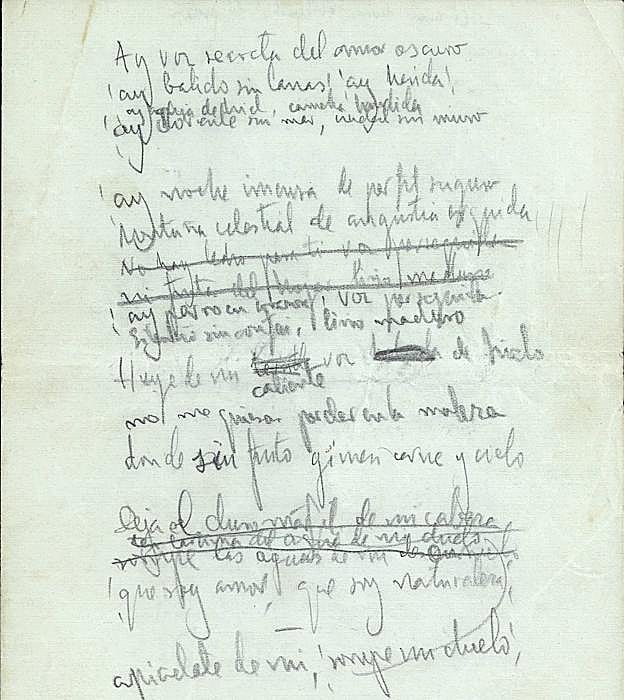 Ay voz secreta del amor oscuro
¡ay balido sin lanas! ¡ay herida!
ay aguja de hiel, camelia hundida
¡ay corriente sin mar, ciudad sin muro
¡ay noche inmensa de perfil seguro
montaña celestial de angustia erguida
No hay para ti voz
mi del lirio maduro
¡ay perro en corazon! voz perseguida
silencio sin confin, lirio maduro
Huye de mi caliente voz de hielo
no me quieras perder en la maleza
donde sin fruto gimen carne y cielo
Deja el duro marfil de mi cabeza
de mi duelo
las aguas de mi
¡que soy amor, que soy naturaleza!
apiadate de mi, ¡rompe mi duelo!,